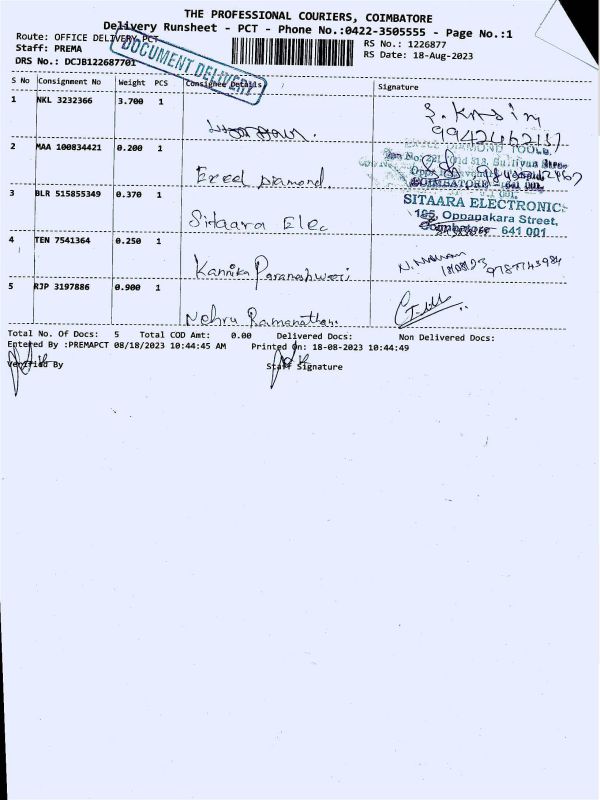 THE PROFESSIONAL COURIERS, COIMBATORE
Delivery Runsheet - PCT - Phone No.:0422-3505555 - Page No.:1
Route: OFFICE DELIVERY PCT
RS No.: 1226877
Staff: PREMA
RS Date: 18-Aug-2023
DRS No.: DCJB122687701
DOCUMENT DELIVERY
S No Consignment No Weight PCS Consignee Details Signature
1 NKL 3232366 3.700 1
S. Kasim
2 MAA 100834421 0.200 1
DIAMOND TOOLS,
Exeed Diamond.
COIMBATORE - 641 001.
3 BLR 515855349 0.370 1
SITAARA ELECTRONICS
185, Oppapakara Street,
Sitaara Elec
Coimbatore - 641 001
4 TEN 7541364 0.250 1
Kannika Parameshweri
5 RJP 3197886 0.900 1
Nehru Ramanathan.
Total No. Of Docs: 5 Total COD Amt: 0.00 Delivered Docs: Non Delivered Docs:
Entered By :PREMAPCT 08/18/2023 10:44:45 AM Printed On: 18-08-2023 10:44:49
Verified By Staff Signature